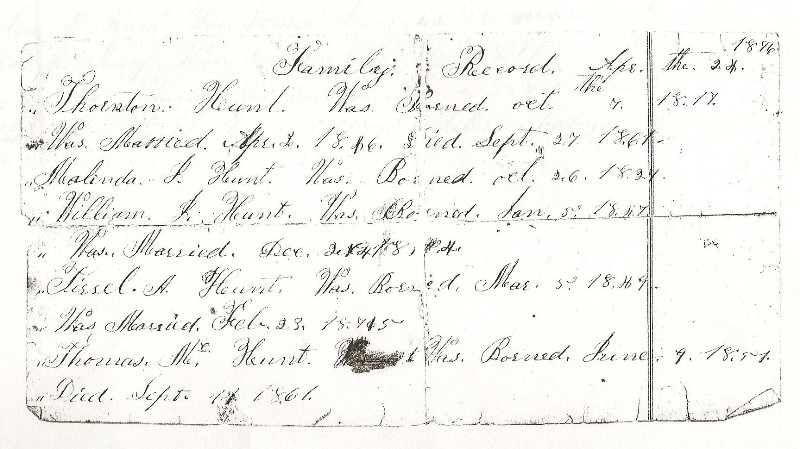 1876
Family. Record. Apr. the. 24.
„ Thornton. Hunt. Was Borned. oct. the 7. 18.17.
„ Was. Married. Apr. 2. 18.46. Died. Sept. 27. 1861.
„ Malinda. J. Hunt. Was. Borned. oct. 26. 182
„ William. J. Hunt. Was. Borned. Jan. 5. 18.47.
„ Was. Married. Dec.
„ A. Hunt. Was. Borned. Mar. 5. 18.49.
„ Was Married. Feb. 23.
„ Thomas. Mc. Hunt. Was. Borned. June. 9. 18.51.
„ Died. Sept. 1861.